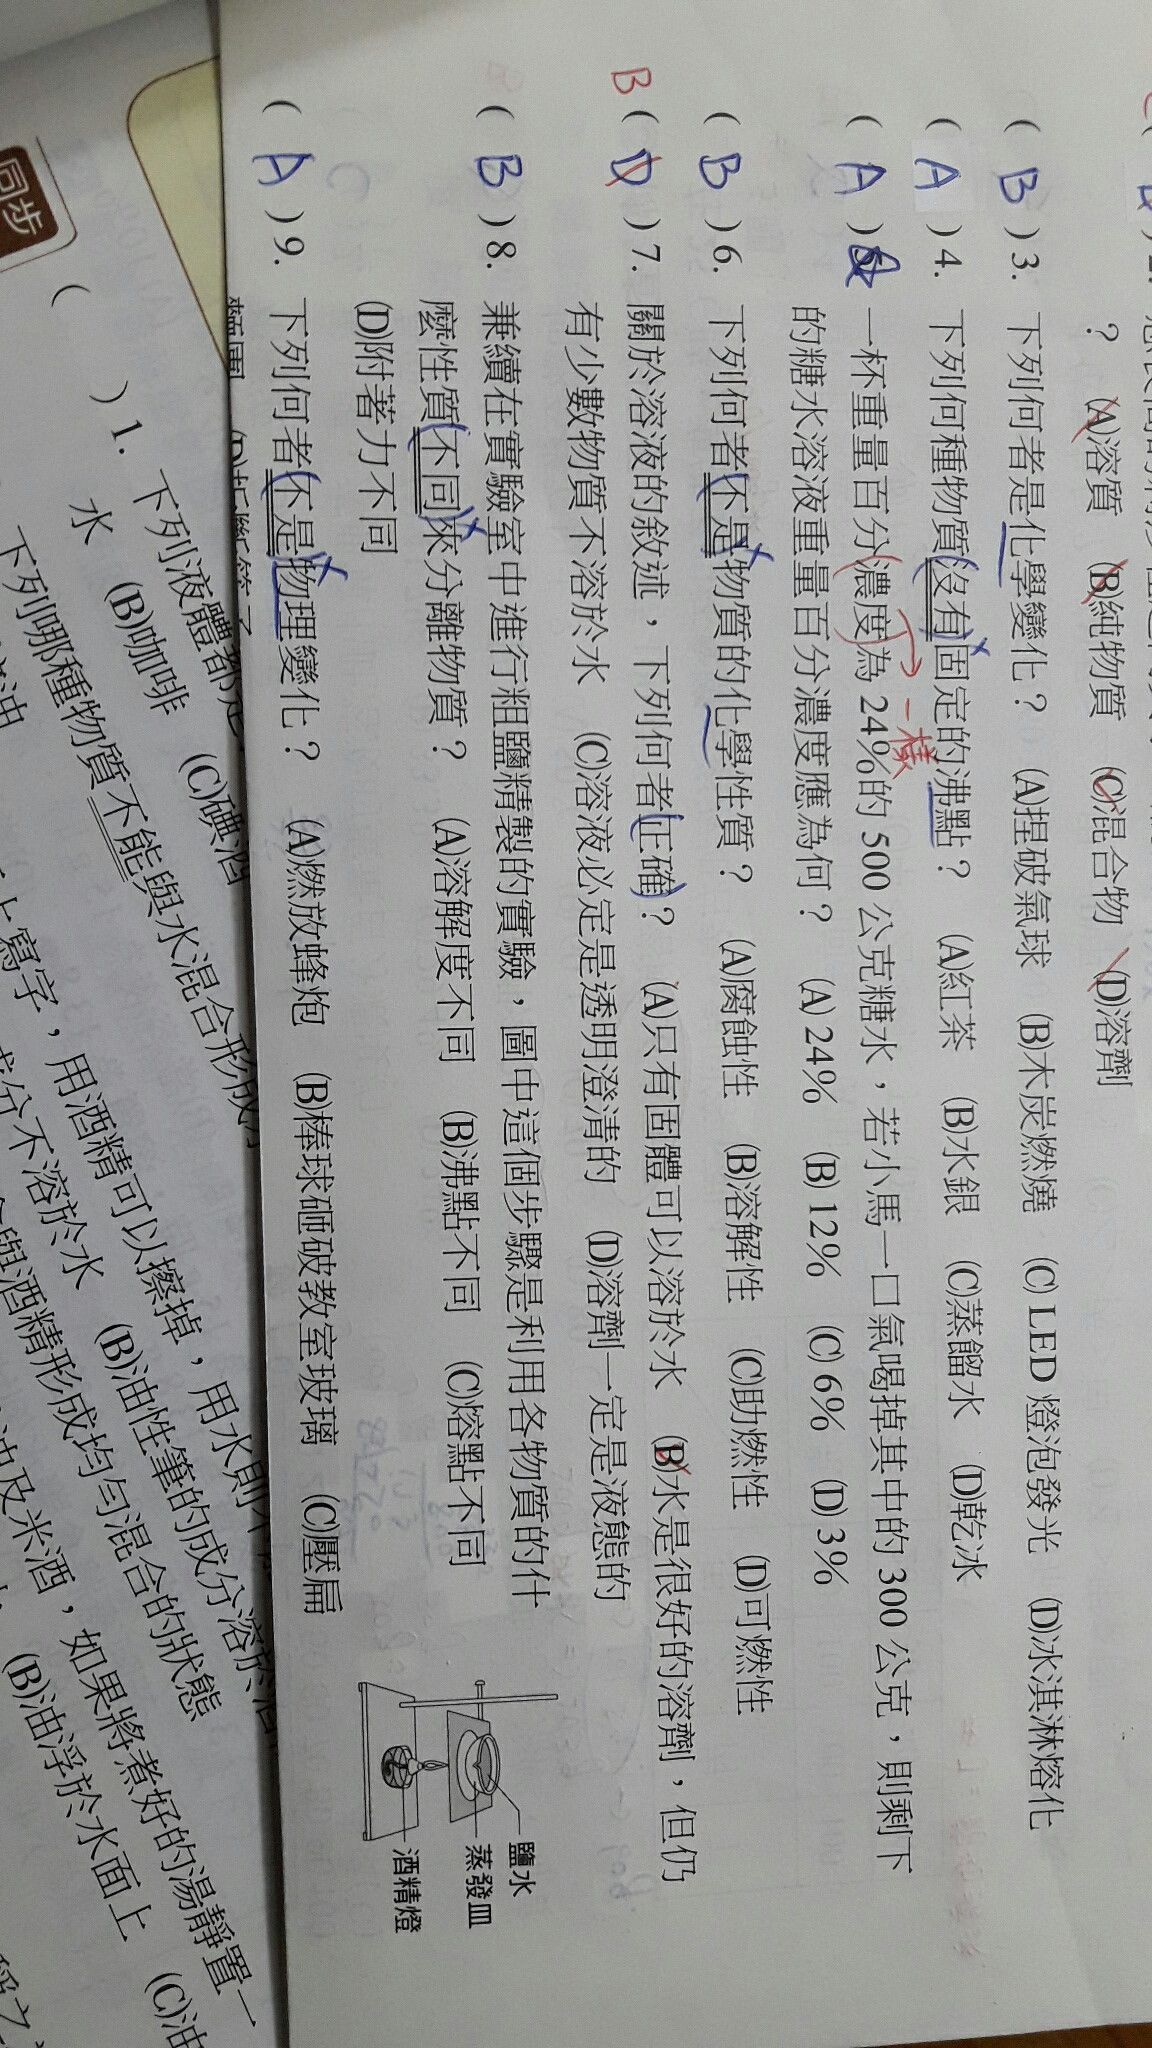 ？ (A)溶質 (B)純物質 (C)混合物 (D)溶劑
( B )3. 下列何者是化學變化？ (A)捏破氣球 (B)木炭燃燒 (C) LED 燈泡發光 (D)冰淇淋熔化
( A )4. 下列何種物質沒有固定的沸點？ (A)紅茶 (B)水銀 (C)蒸餾水 (D)乾冰
一樣
( A ) 一杯重量百分濃度為 24%的 500 公克糖水，若小馬一口氣喝掉其中的 300 公克，則剩下
的糖水溶液重量百分濃度應為何？ (A) 24% (B) 12% (C) 6% (D) 3%
( B )6. 下列何者不是物質的化學性質？ (A)腐蝕性 (B)溶解性 (C)助燃性 (D)可燃性
B ( D )7. 關於溶液的敘述，下列何者正確？ (A)只有固體可以溶於水 (B)水是很好的溶劑，但仍
有少數物質不溶於水 (C)溶液必定是透明澄清的 (D)溶劑一定是液態的
( B )8. 兼續在實驗室中進行粗鹽精製的實驗，圖中這個步驟是利用各物質的什
麼性質不同來分離物質？ (A)溶解度不同 (B)沸點不同 (C)熔點不同
(D)附著力不同
鹽水
蒸發皿
酒精燈
( A )9. 下列何者不是物理變化？ (A)燃放蜂炮 (B)棒球砸破教室玻璃 (C)壓扁
同步
( )1. 下列液體都是
水 (B)咖啡 (C)碘酒
下列哪種物質不能與水混合形成
寫字，用酒精可以擦掉，用水則不
成分不溶於水 (B)油性筆的成分溶於酒
與酒精形成均勻混合的狀態
油及米酒，如果將煮好的湯靜置一
(B)油浮於水面上 (C)油